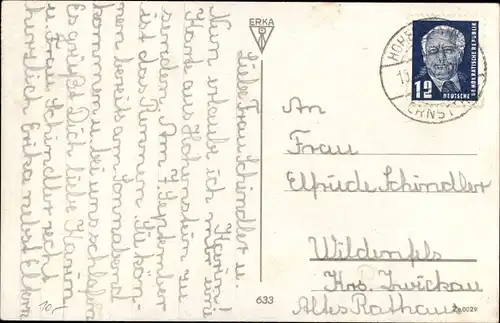 Liebe Frau Schindler u.
Karin!
Nun erlaube ich mir eine
Karte aus Hohenstein zu
senden. Am 7. September
ist das Rennen. Sie kön-
nen bereits am Sonnabend
kommen u. bei uns schlafen
Es grüßt Dich liebe Karin
u. Frau Schindler recht
herzlich Erika nebst Eltern
10,-
ERKA
633
HOHE
ERNST
12
DEUTSCHE
DEMOKRATISCHE REPUBLIK
An
Frau
Elfriede Schindler
Wildenfels
Krs. Zwickau
Altes Rathaus